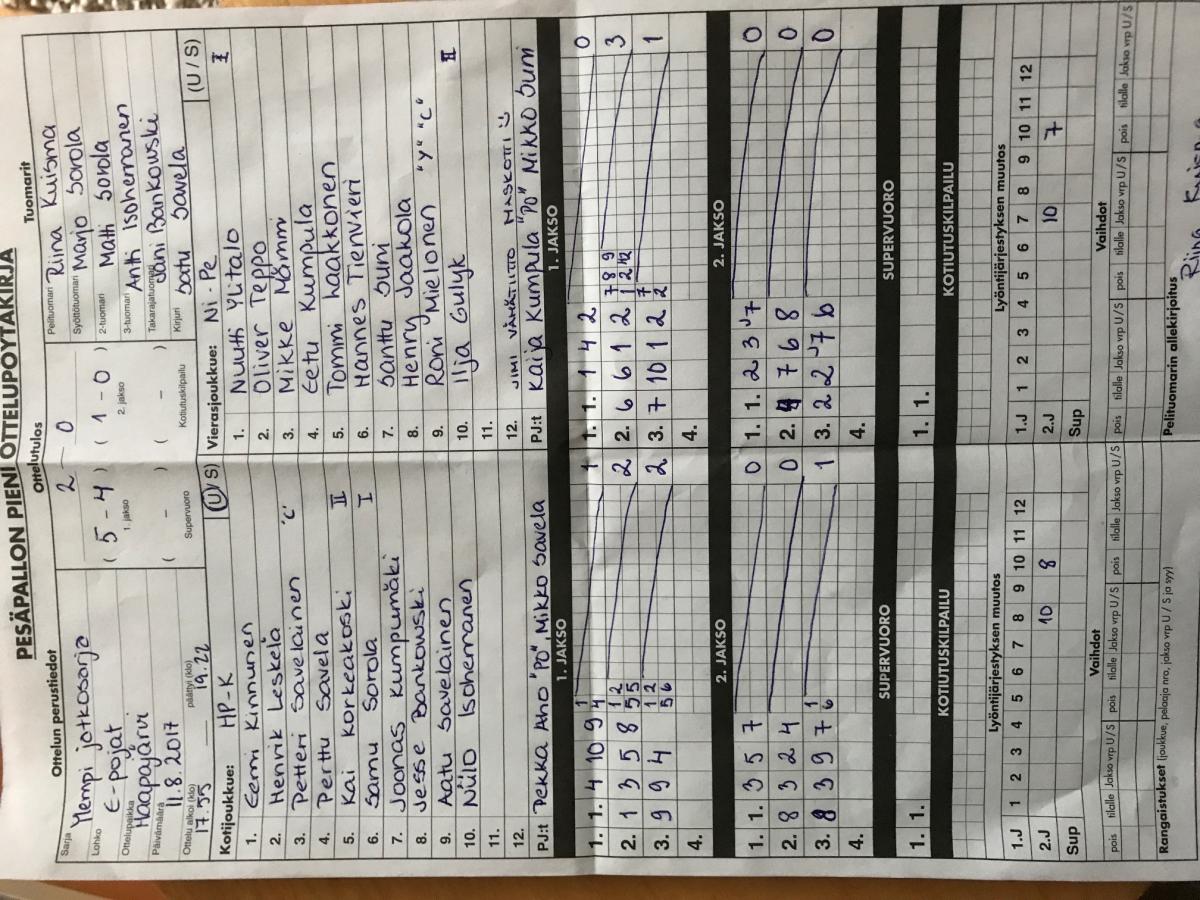 PESÄPALLON PIENI OTTELUPÖYTÄKIRJA
Ottelun perustiedot
Sarja Mempi jatkosarja
Lohko E-pojat
Ottelupaikka Haapajärvi
Päivämäärä 11.8.2017
Ottelu alkoi (klo) 17.55 päättyi (klo) 19.22
Ottelutulos
2 – 0
( 5 - 4 ) ( 1 - 0 )
1. jakso 2. jakso
( - ) ( - )
Supervuoro Kotiutuskilpailu
Tuomarit
Pelituomari Riina Kuisma
Syöttötuomari Marjo Sorola
2-tuomari Matti Sorola
3-tuomari Antti Isoherranen
Takarajatuomari Jani Bankowski
Kirjuri Satu Savela
Kotijoukkue: HP-K (U / S)
1. Eemi Kinnunen
2. Henrik Leskelä
3. Petteri Savelainen "C"
4. Perttu Savela
5. Kai Korkeakoski II
6. Samu Sorola I
7. Joonas Kumpumäki
8. Jesse Bankowski
9. Aatu Savelainen
10. Niilo Isoherranen
11.
12.
PJ:t Pekka Aho "PO", Mikko Savela
Vierasjoukkue: Ni-Pe (U / S)
1. Nuutti Ylitalo I
2. Oliver Teppo
3. Mikke Mämmi
4. Eetu Kumpula
5. Tommi Laakkonen
6. Hannes Tienvieri
7. Santtu Suni
8. Henry Jaakola
9. Roni Mielonen "Y" "C"
10. Ilja Gulyk II
11.
12. JIMI VÄHÄTIITTO MASKOTTI
PJ:t Kaija Kumpula "PO" Mikko Suni
1. JAKSO
1. 1. 4 10 9 1 4 1
2. 1 3 5 8 1 2 5 5 2
3. 9 9 4 1 2 5 6 2
4.
1. JAKSO
1. 1. 1 4 2 0
2. 6 6 1 2 7 8 9 1 2 12 3
3. 7 10 1 2 7 2 1
4.
2. JAKSO
1. 1. 3 5 7 0
2. 8 3 2 4 0
3. 8 3 9 7 1 6 1
4.
2. JAKSO
1. 1. 2 3 J7 0
2. 7 6 8 0
3. 2 2 J7 6 0
4.
SUPERVUORO
1. 1.
SUPERVUORO
1. 1.
KOTIUTUSKILPAILU
KOTIUTUSKILPAILU
Lyöntijärjestyksen muutos
1.J 1 2 3 4 5 6 7 8 9 10 11 12
2.J 10 8
Sup
Lyöntijärjestyksen muutos
1.J 1 2 3 4 5 6 7 8 9 10 11 12
2.J 10 7
Sup
Vaihdot
pois tilalle Jakso vrp U/S pois tilalle Jakso vrp U/S pois tilalle Jakso vrp U/S
Vaihdot
pois tilalle Jakso vrp U/S pois tilalle Jakso vrp U/S pois tilalle Jakso vrp U/S
Rangaistukset (joukkue, pelaaja nro, jakso vrp U / S ja syy)
Pelituomarin allekirjoitus
Riina Kuisma